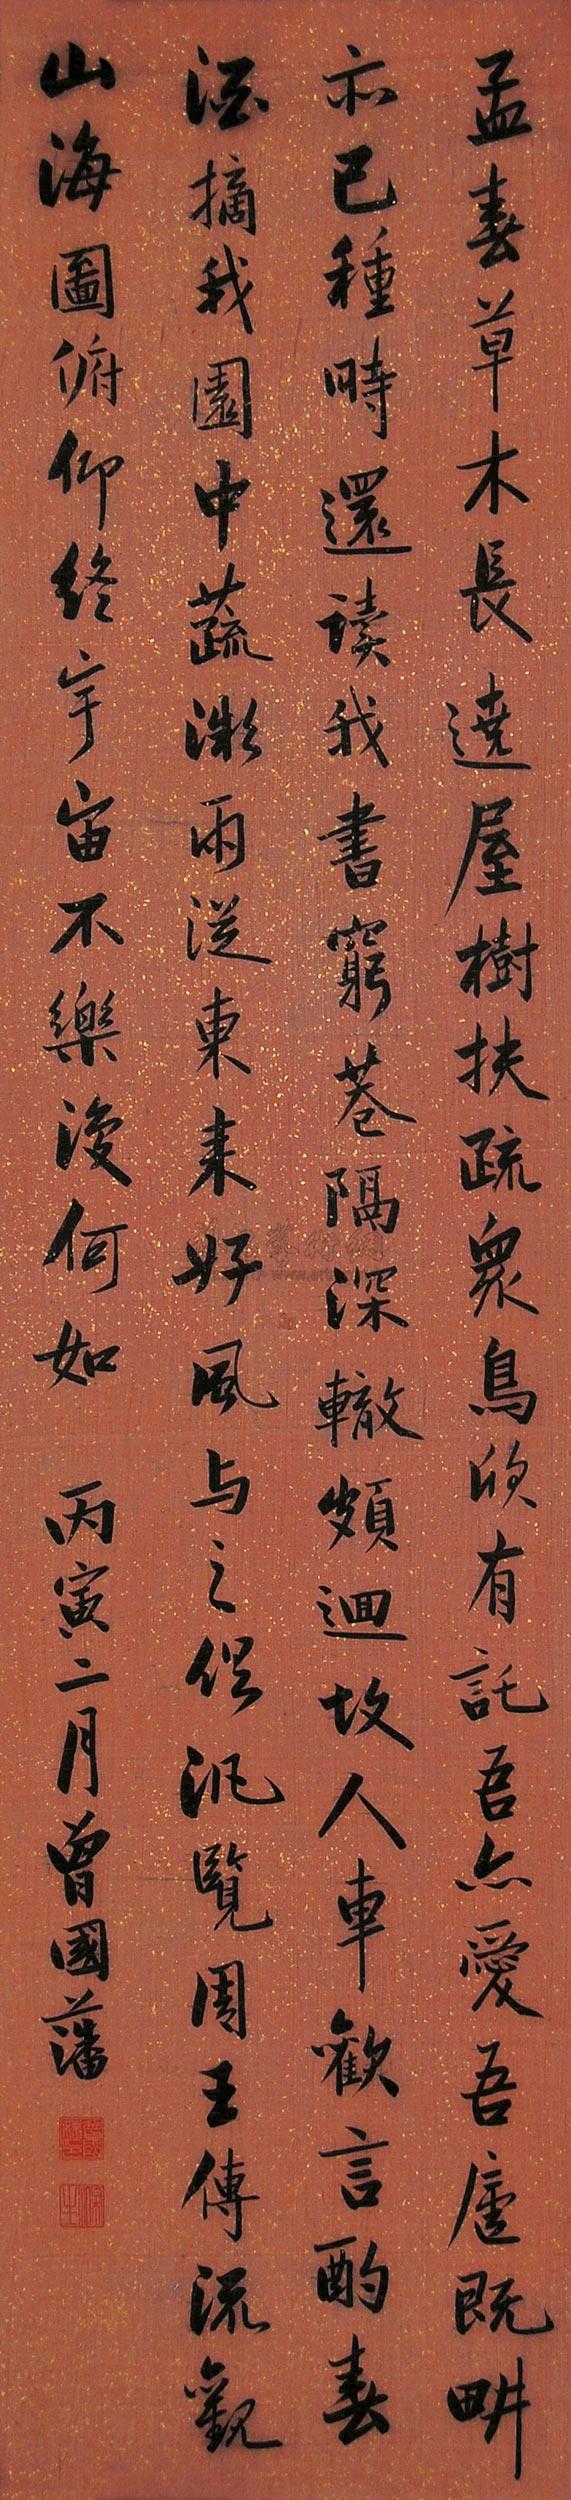 孟春草木長遶屋樹扶疏衆鳥欣有託吾亦愛吾廬既畊
亦已種時還读我書窮巷隔深轍頗迴故人車歡言酌春
酒摘我園中蔬微雨從東来好風与之俱汎覽周王傳流觀
山海圖俯仰終宇宙不樂復何如 丙寅二月曾國藩